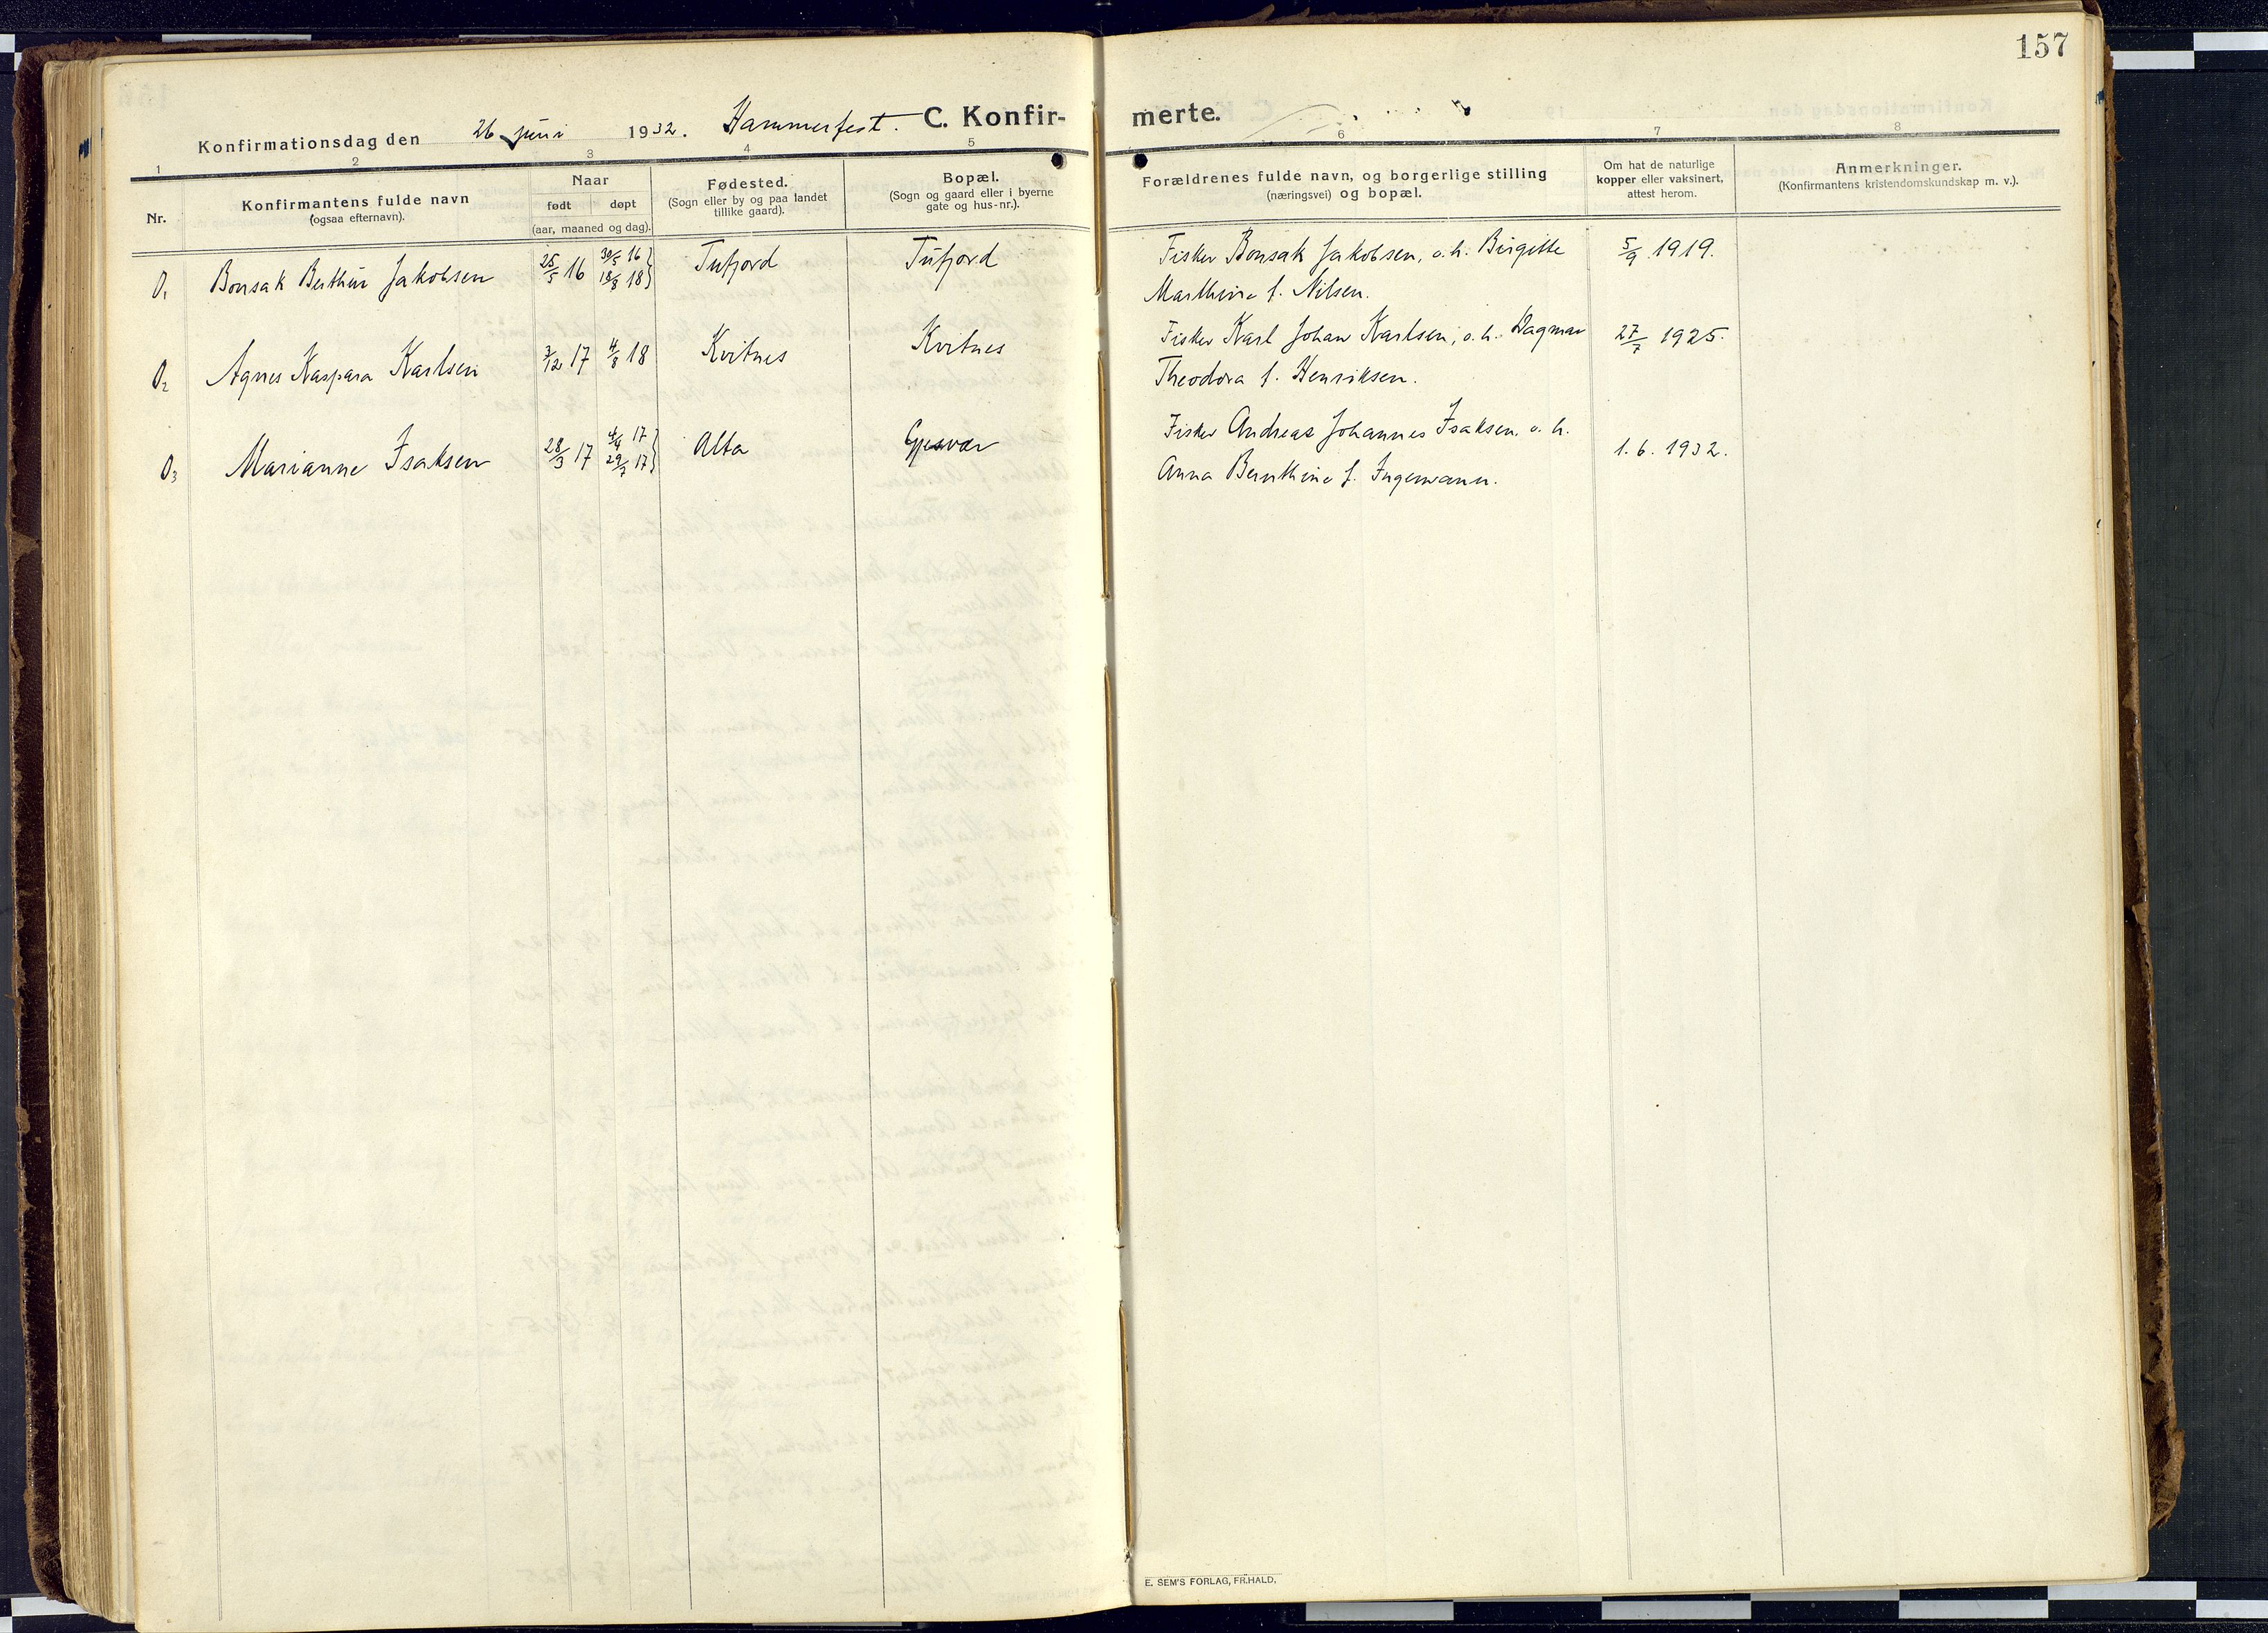 157
Konfirmationsdag den 26 juni 1932. Hammerfest. C. Konfirmerte.
1 2 3 4 5 6 7 8
Nr.
Konfirmantens fulde navn
(ogsaa efternavn).
Naar
født døpt
(aar, maaned og dag).
Fødested.
(Sogn eller by og paa landet
tillike gaard).
Bopæl.
(Sogn og gaard eller i byerne
gate og hus-nr.).
Forældrenes fulde navn, og borgerlige stilling
(næringsvei) og bopæl.
Om hat de naturlige
kopper eller vaksinert,
attest herom.
Anmerkninger.
(Konfirmantens kristendomskundskap m. v.).
O1 Bonsak Berthin Jakobsen 25/5 16 30/5 16 } 18/8 18 } Tufjord Tufjord Fisker Bonsak Jakobsen, o. h. Birgitte 5/9 1919.
Marthine f. Nilsen.
O2 Agnes Kaspara Karlsen 3/12 17 4/8 18 Kvitnes Kvitnes Fisker Karl Johan Karlsen, o. h. Dagmar 27/7 1925.
Theodora f. Henriksen.
O3 Marianne Isaksen 28/3 17 4/4 17 } 29/7 17 } Alta Gjesvær Fisker Andreas Johannes Isaksen, o. h. 1. 6. 1932.
Anna Bernthine f. Ingemann.
E. SEM'S FORLAG, FR.HALD.